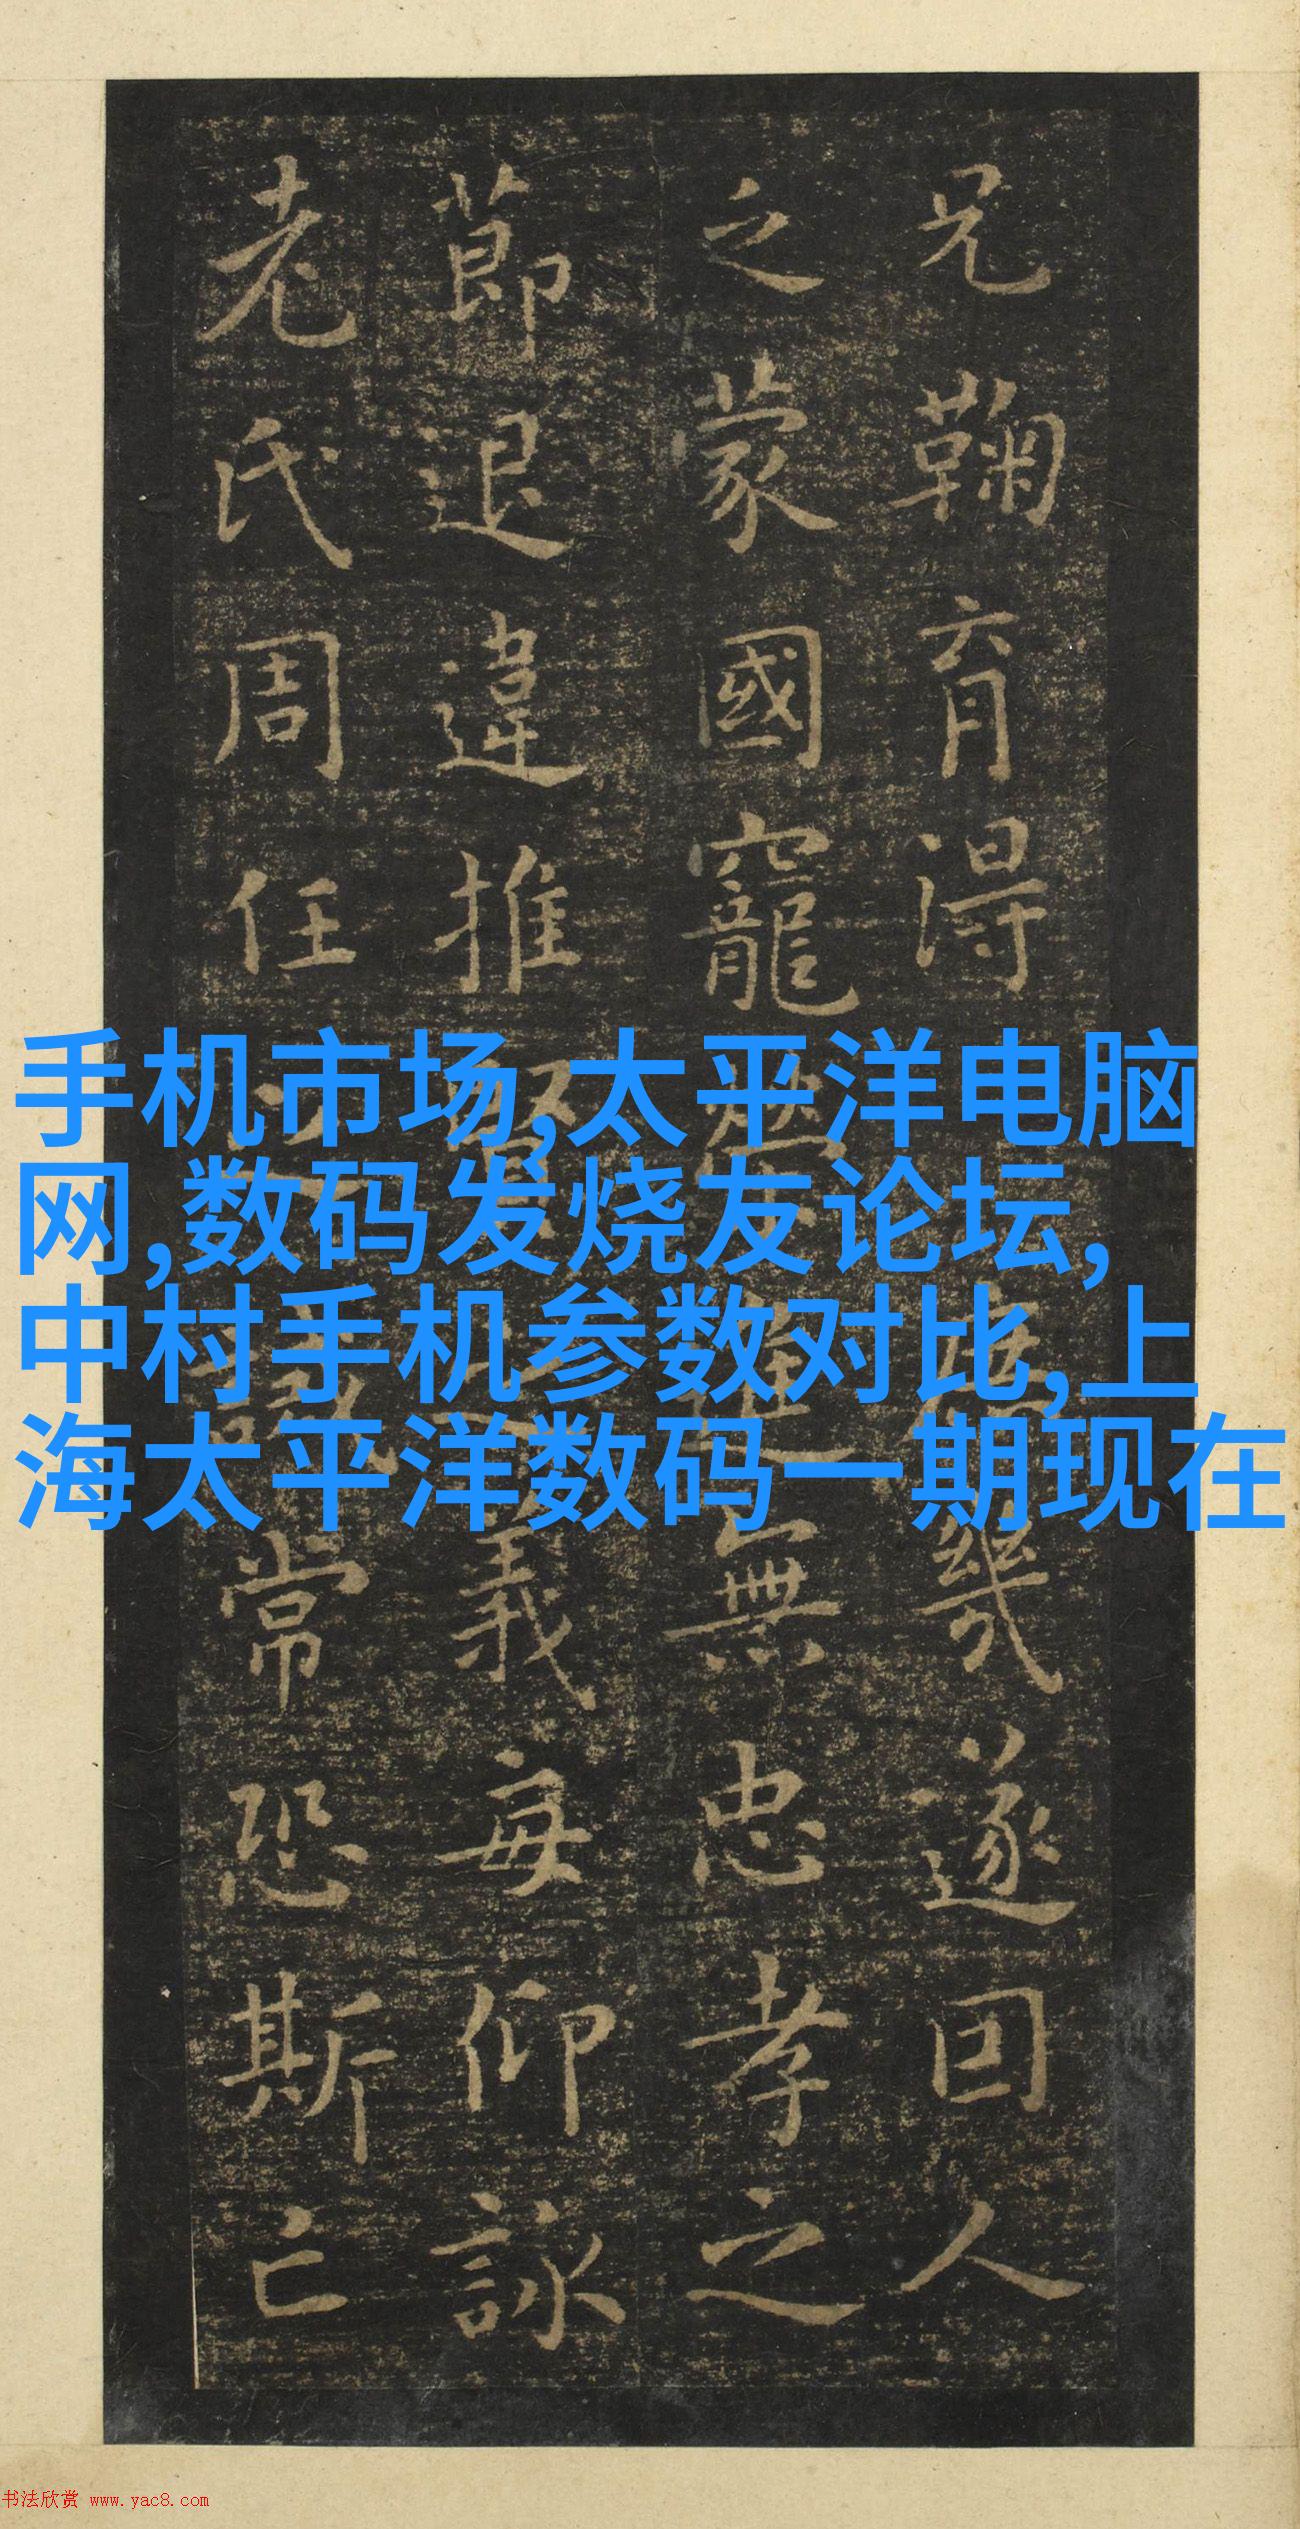 兄鞠育得庶幾遂因人
乏蒙國寵榮進無忠孝之
節退違推賢之義每仰詠
老氏周任之誡常恐斯亡
手机市场,太平洋电脑
网,数码发烧友论坛,
中村手机参数对比,上
海太平洋数码一期现在
书法欣赏 www.yac8.com